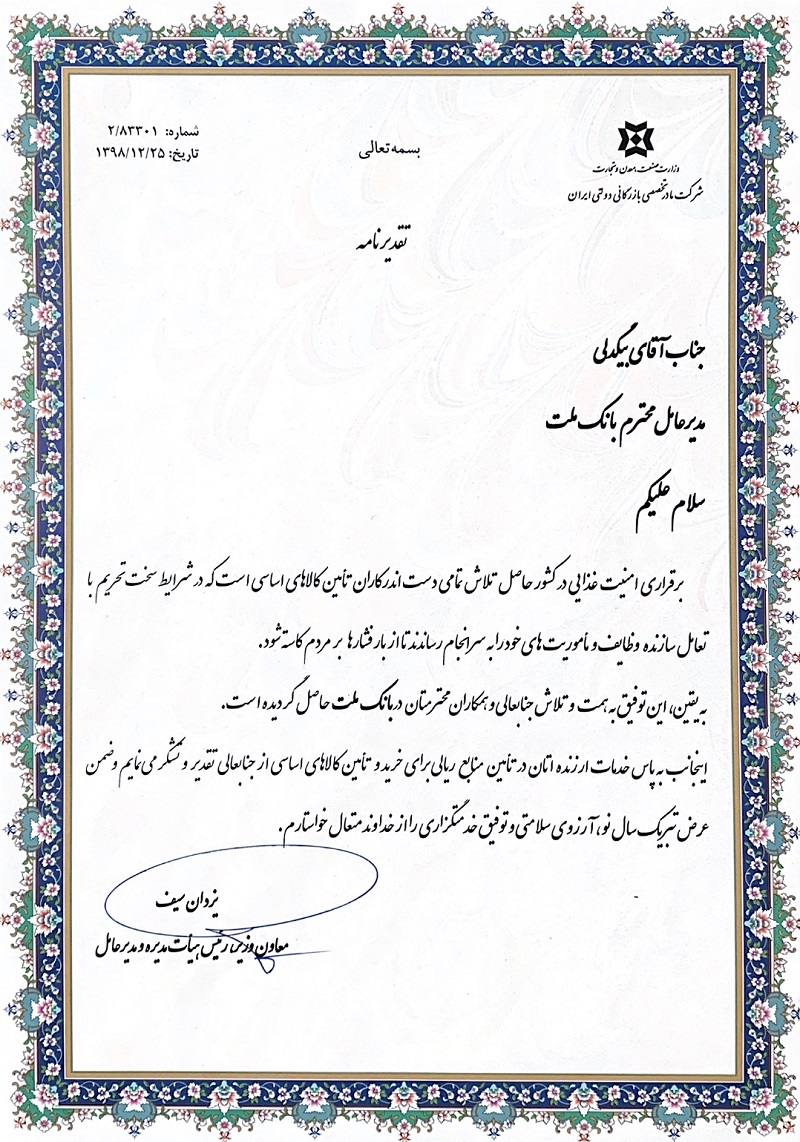 بسمه تعالی
شماره: ۲/۸۳۳۰۱
تاریخ: ۱۳۹۸/۱۲/۲۵
وزارت صنعت، معدن و تجارت
شرکت مادر تخصصی بازرگانی دولتی ایران
تقدیرنامه
جناب آقای بیگدلی
مدیرعامل محترم بانک ملت
سلام علیکم
برقراری امنیت غذایی در کشور حاصل تلاش تمامی دست اندرکاران تأمین کالاهای اساسی است که در شرایط سخت تحریم با
تعامل سازنده وظایف و مأموریت های خود را به سرانجام رساندند تا از بار فشارها بر مردم کاسته شود.
به یقین، این توفیق به همت و تلاش جنابعالی و همکاران محترمتان در بانک ملت حاصل گردیده است.
اینجانب به پاس خدمات ارزنده اتان در تأمین منابع ریالی برای خرید و تأمین کالاهای اساسی از جنابعالی تقدیر و تشکر می نمایم و ضمن
عرض تبریک سال نو، آرزوی سلامتی و توفیق خدمتگزاری را از خداوند متعال خواستارم.
یزدان سیف
معاون وزیر، رئیس هیأت مدیره و مدیرعامل